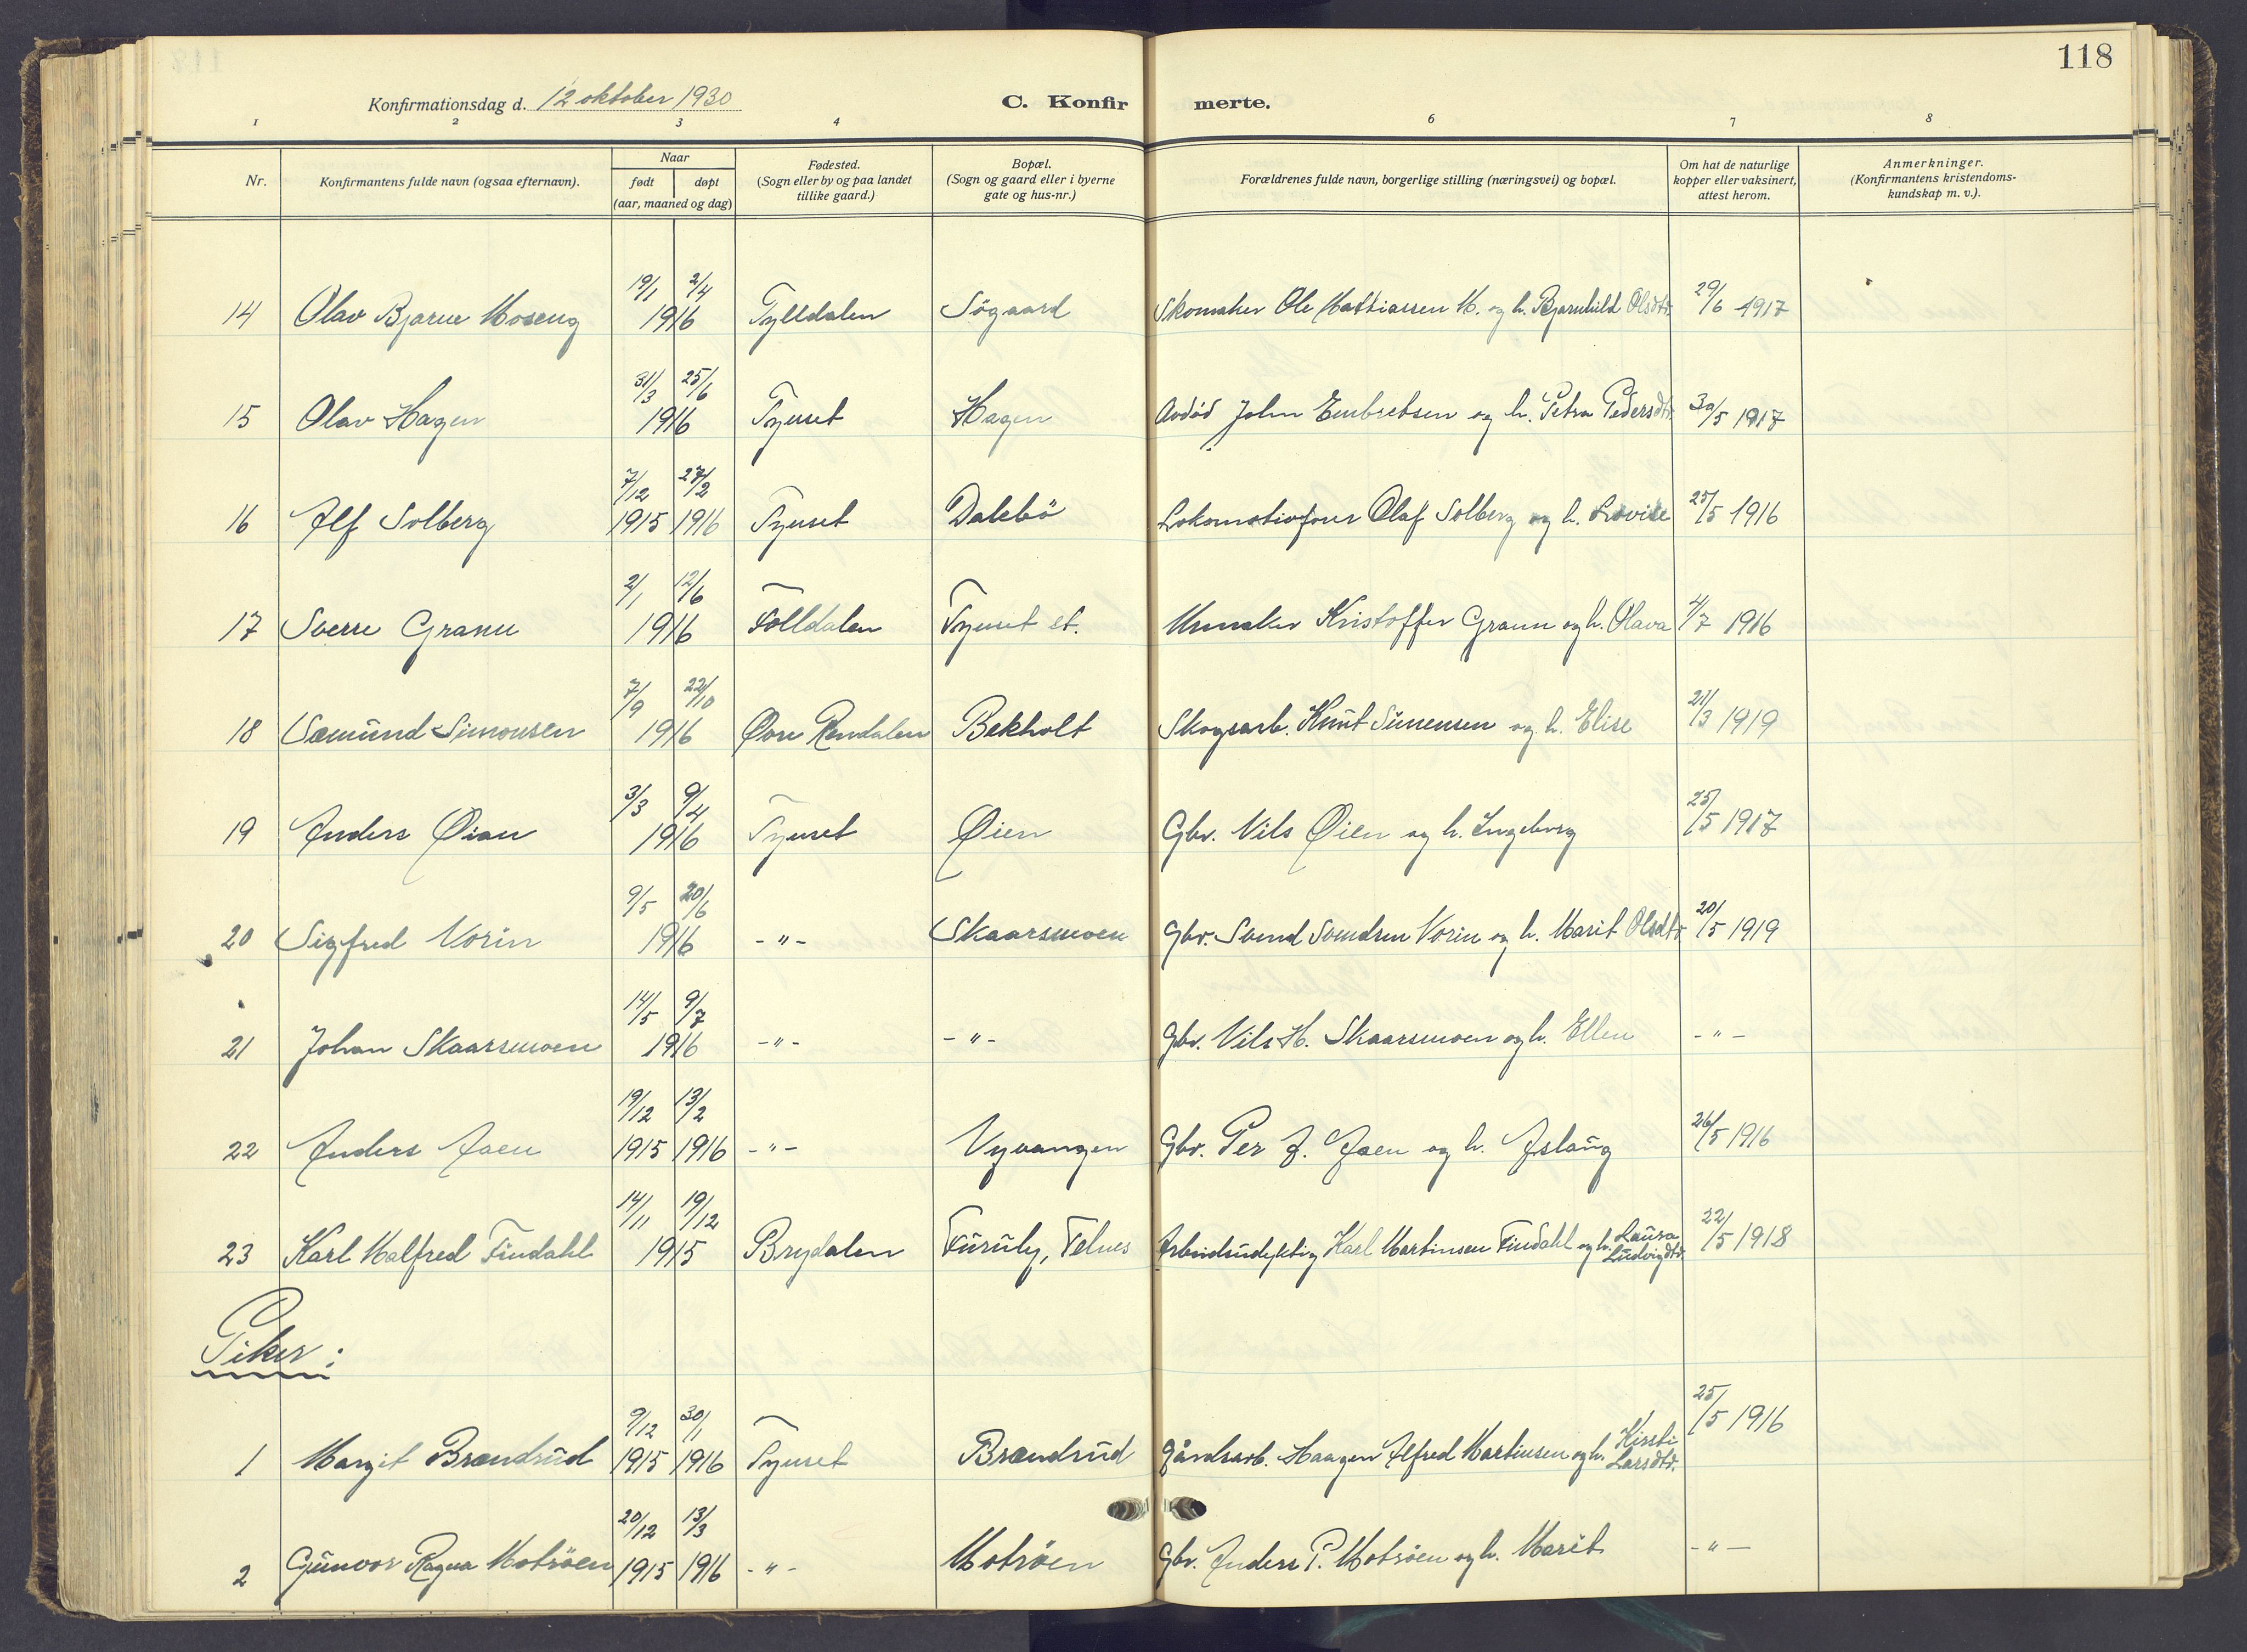 118
Konfirmationsdag d. 12 oktober 1930 C. Konfirmerte.
1 2 3 4 6 7 8
Nr. Konfirmantens fulde navn (ogsaa efternavn). Naar født døpt (aar, maaned og dag) Fødested. (Sogn eller by og paa landet tillike gaard.) Bopæl. (Sogn og gaard eller i byerne gate og hus-nr.) Forældrenes fulde navn, borgerlige stilling (næringsvei) og bopæl. Om hat de naturlige kopper eller vaksinert, attest herom. Anmerkninger. (Konfirmantens kristendoms-kundskap m. v.).
14 Olav Bjarne Moseng 19/1 2/4 1916 Tylldalen Søgaard Skomaker Ole Mattiassen M. og h. Bjarnhild Olsdtr. 29/6 1917
15 Olav Hagen 31/3 25/6 1916 Tynset Hagen Avdød John Embretsen og h. Petra Pedersdtr. 30/5 1917
16 Alf Solberg 7/12 1915 27/2 1916 Tynset Dalebö Lokomotivfører Olaf Solberg og h. Lovise 25/5 1916
17 Sverre Grann 2/1 12/6 1916 Folldalen Tynset st. Urmaker Kristoffer Grann og h. Olava 4/7 1916
18 Sæmund Simonsen 7/9 22/10 1916 Øvre Rendalen Bekholt Skogsarb. Knut Simensen og h. Elise 21/3 1919
19 Anders Øian 3/3 9/4 1916 Tynset Øien Gbr. Nils Øien og h. Ingeborg 25/5 1917
20 Sigfred Vorin 9/5 20/6 1916 -"- Skaarsmoen Gbr. Svend Svendsen Vorin og h. Marit Olsdtr. 20/5 1919
21 Johan Skaarsmoen 14/5 9/7 1916 -"- -"- Gbr. Nils H. Skaarsmoen og h. Ellen -"-
22 Anders Aaen 19/12 1915 13/2 1916 -"- Nyvangen Gbr. Per J. Aaen og h. Aslaug 26/5 1916
23 Karl Malfred Findahl 14/11 19/12 1915 Brydalen Furuly, Telnes Arbeidsudyktig Karl Martinsen Findahl og h. Laura Ludvigdtr. 22/5 1918
Piker:
1 Margit Brændrud 9/12 1915 30/1 1916 Tynset Brændrud Gårdsarb. Haagen Alfred Martinsen og h. Kirsti Larsdtr. 25/5 1916
2 Gunvor Ragna Motröen 20/12 1915 13/3 1916 -"- Motröen Gbr. Anders P. Motröen og h. Marit -"-